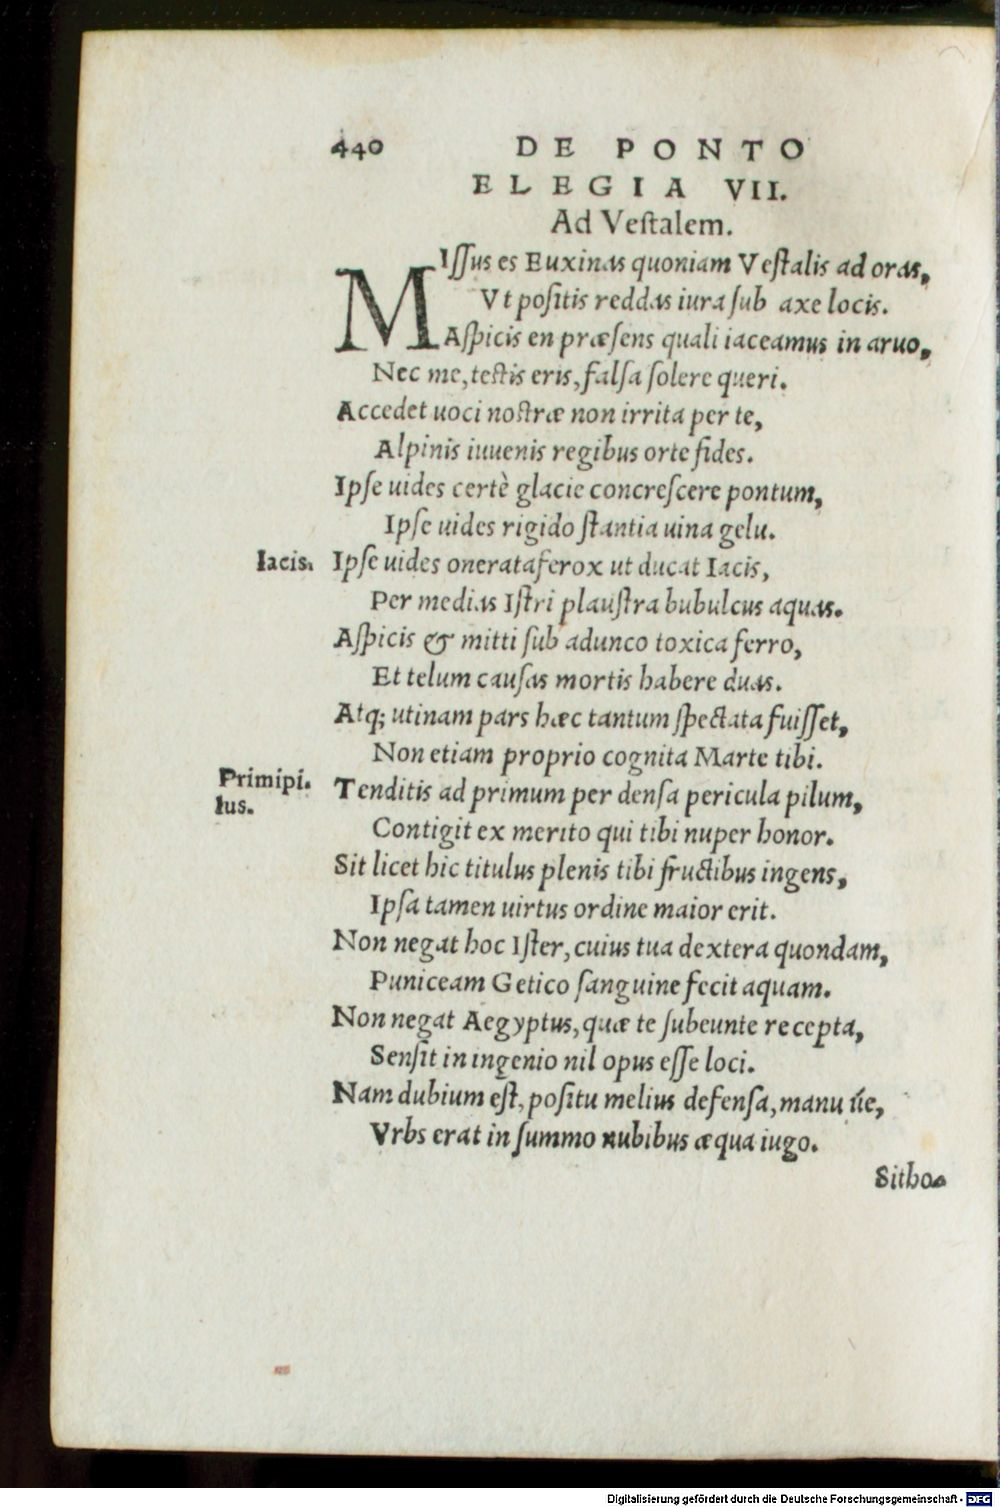 440 DE PONTO
ELEGIA VII.
Ad Veſtalem.
MIſſus es Euxinas quoniam Veſtalis ad oras,
Vt poſitis reddas iura ſub axe locis.
Aſpicis en præſens quali iaceamus in aruo,
Nec me, teſtis eris, falſa ſolere queri.
Accedet uoci noſtræ non irrita per te,
Alpinis iuuenis regibus orte fides.
Ipſe uides certè glacie concreſcere pontum,
Ipſe uides rigido ſtantia uina gelu.
Iacis. Ipſe uides onerata ferox ut ducat Iacis,
Per medias Iſtri plauſtra bubulcus aquas.
Aſpicis & mitti ſub adunco toxica ferro,
Et telum cauſas mortis habere duas.
Atq; utinam pars hæc tantum ſpectata fuiſſet,
Non etiam proprio cognita Marte tibi.
Primipi. Tenditis ad primum per denſa pericula pilum,
lus.
Contigit ex merito qui tibi nuper honor.
Sit licet hic titulus plenis tibi fructibus ingens,
Ipſa tamen uirtus ordine maior erit.
Non negat hoc Iſter, cuius tua dextera quondam,
Puniceam Getico ſanguine fecit aquam.
Non negat Aegyptus, quæ te ſubeunte recepta,
Senſit in ingenio nil opus eſſe loci.
Nam dubium eſt, poſitu melius defenſa, manu úe,
Vrbs erat in ſummo nubibus æqua iugo.
Sitho-
Digitalisierung gefördert durch die Deutsche Forschungsgemeinschaft - DFG